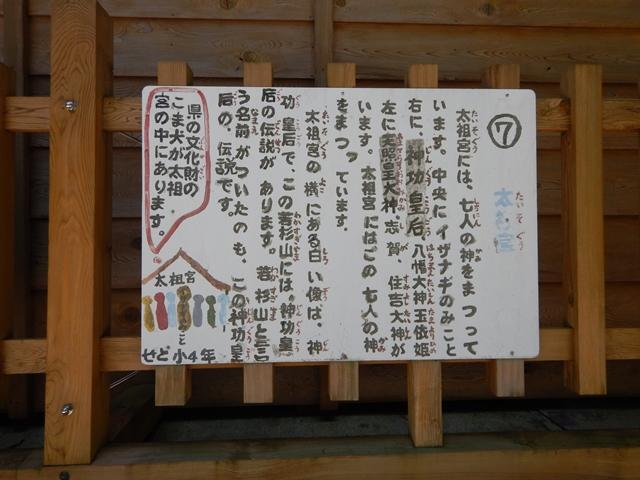 ⑦
太祖宮
太祖宮には、七人の神をまつって
います。中央にイザナギのみこと
右に、神功皇后、八幡大神玉依姫
左に天照皇大神、志賀、住吉大神が
います。太祖宮にはこの七人の神
をまつっています。
太祖宮の横にある白い像は、神
功皇后で、この若杉山には、神功皇
后の伝説があります。若杉山と言
う名前がついたのも、この神功皇
后の、伝説です。
県の文化財の
こま犬が太祖
宮の中にあります。
太祖宮
せど小4年